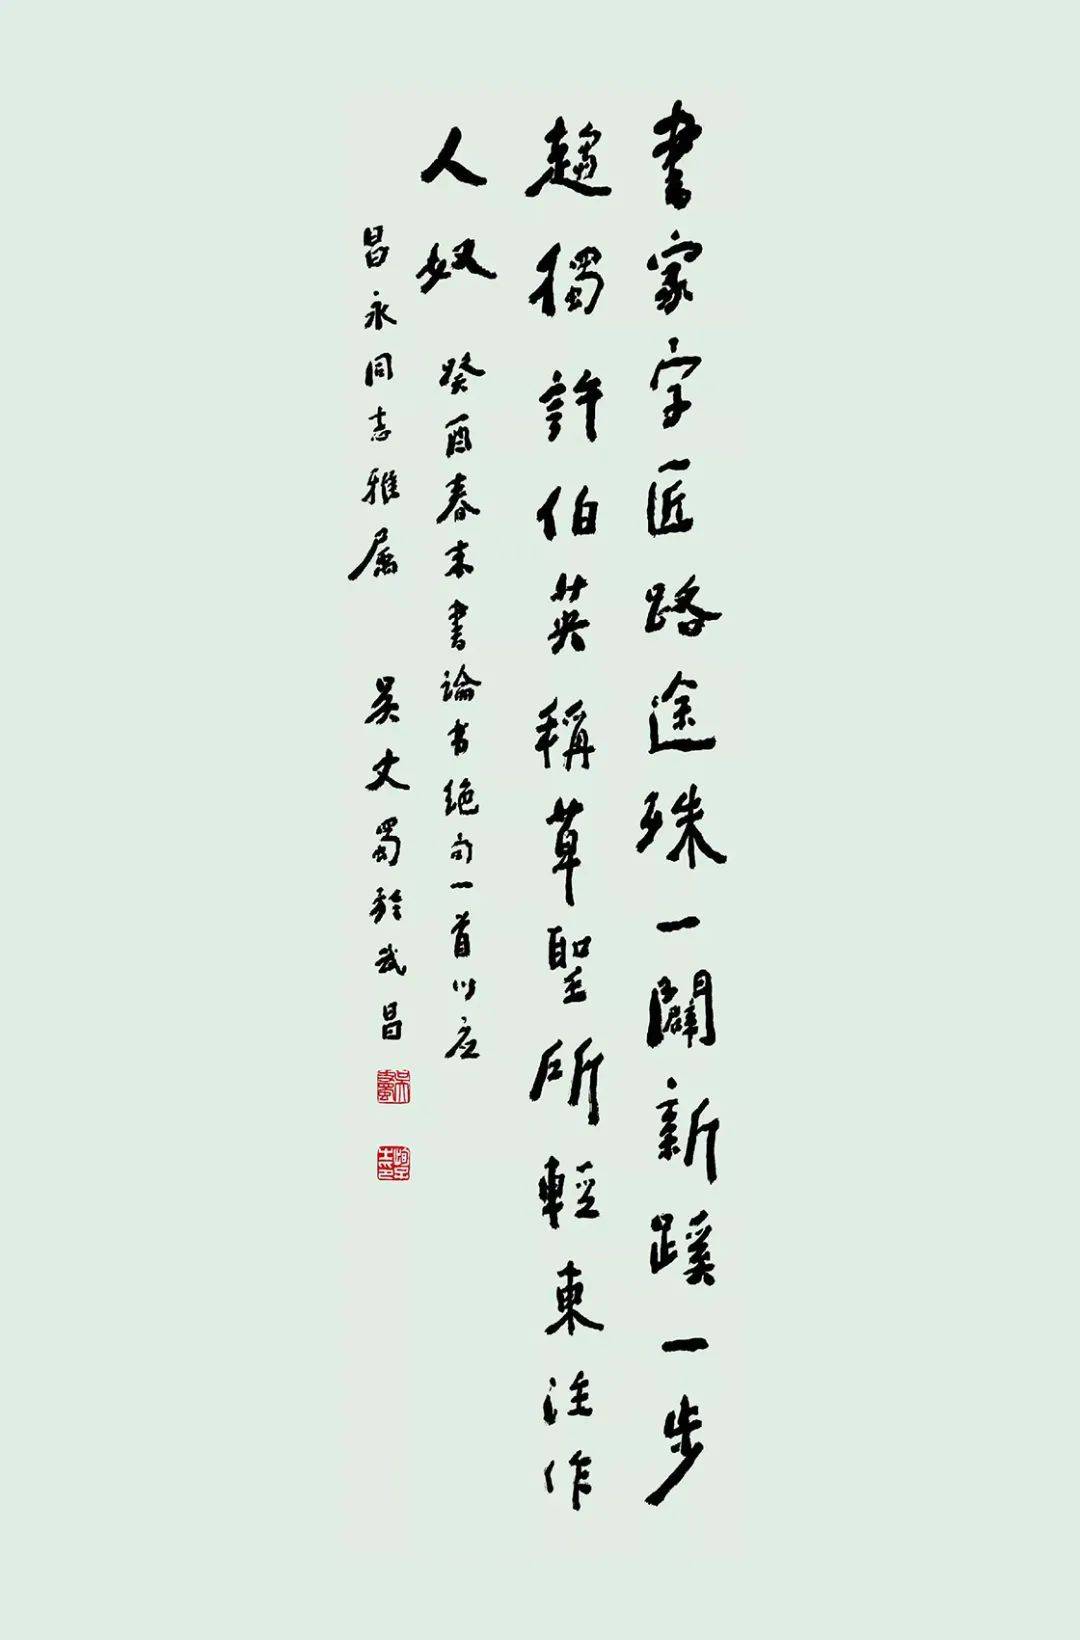 書家字匠路途殊一闢新蹊一步
趨獨許伯英稱草聖所輕東注作
人奴
癸酉春末書論书绝句一首以应
昌永同志雅属
吴丈蜀於武昌